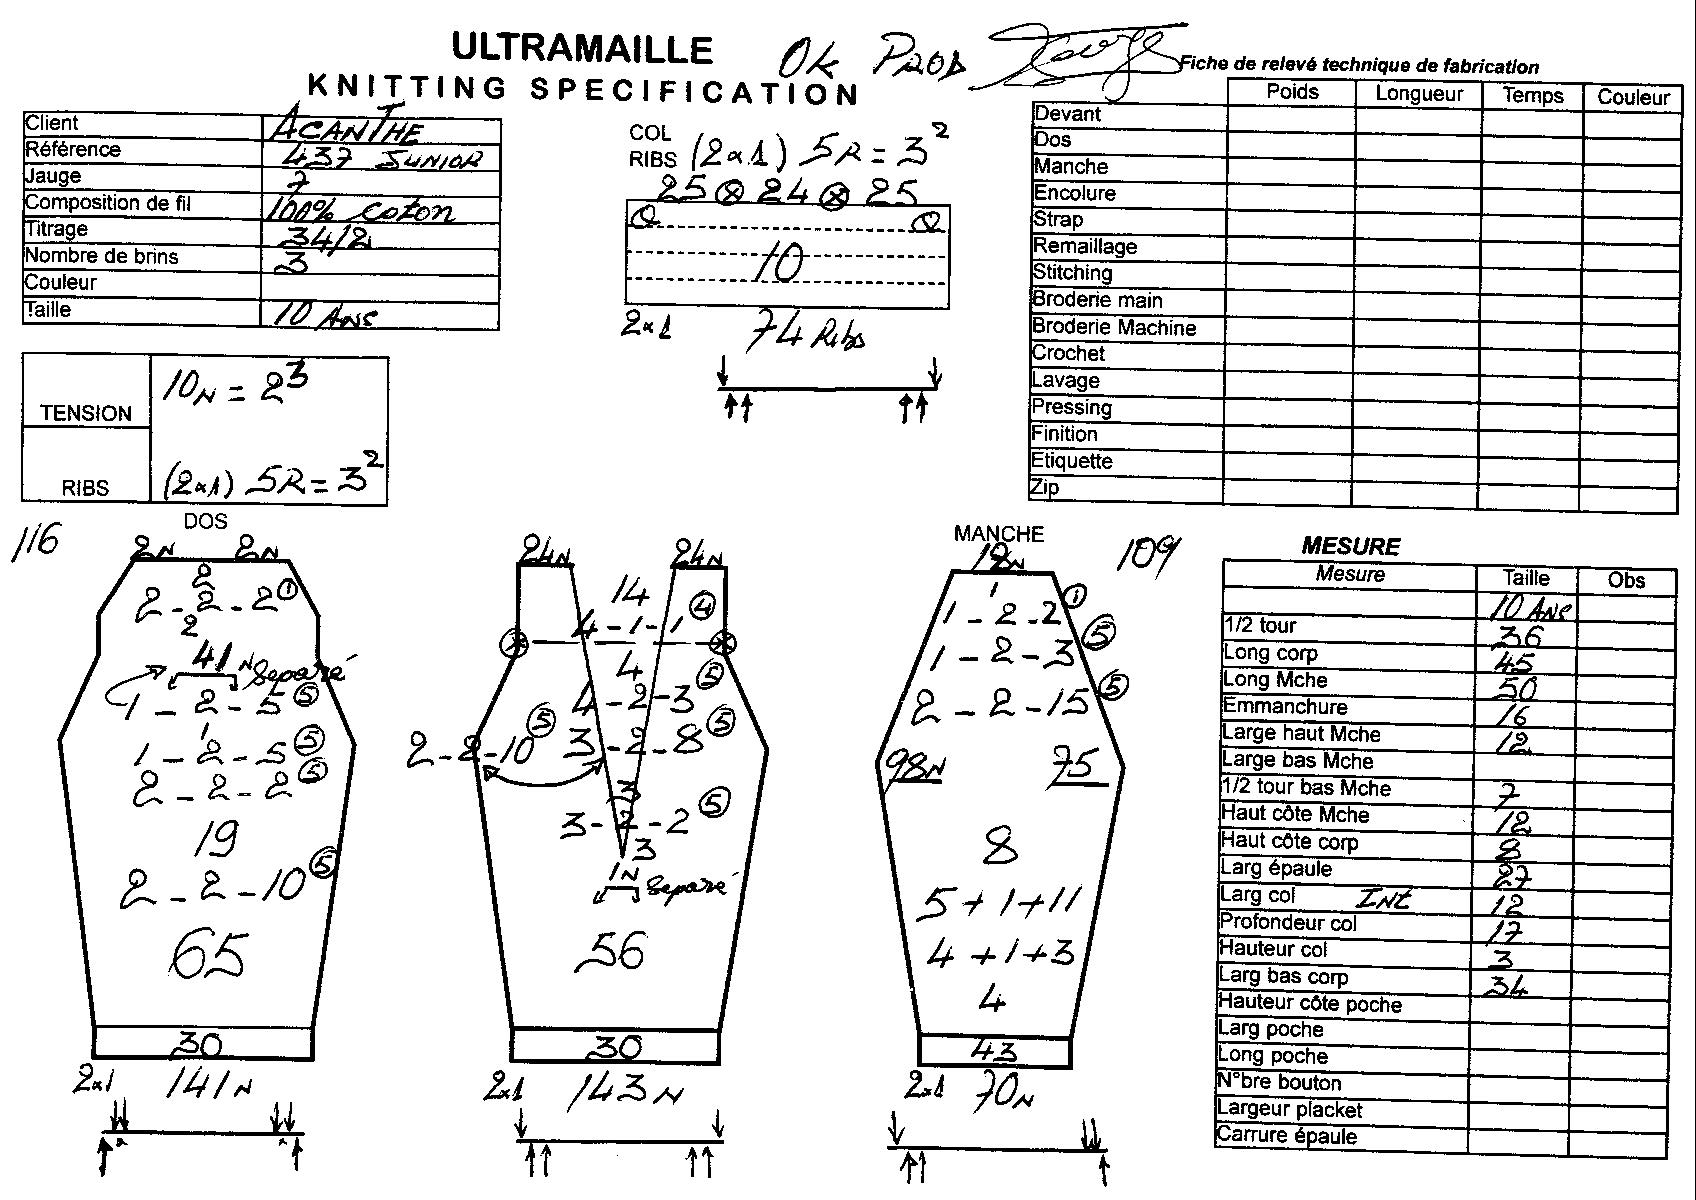 ULTRAMAILLE
KNITTING SPECIFICATION
Ok PROD
Fiche de relevé technique de fabrication
Client ACANTHE
Référence 437 JUNIOR
Jauge 7
Composition de fil 100% coton
Titrage 34/2
Nombre de brins 3
Couleur
Taille 10 ANS
COL
RIBS (2x1) 5R = 3²
25 ⊗ 24 ⊗ 25
10
2x1 74 Ribs
Poids Longueur Temps Couleur
Devant
Dos
Manche
Encolure
Strap
Remaillage
Stitching
Broderie main
Broderie Machine
Crochet
Lavage
Pressing
Finition
Etiquette
Zip
TENSION 10N = 2³
RIBS (2x1) 5R = 3²
116
DOS
2N 2N
2
2 - 2 - 2 ①
2
41N Separé
1 - 2 - 5 ⑤
1
1 - 2 - 5 ⑤
2 - 2 - 2 ⑤
19
2 - 2 - 10 ⑤
65
30
2x1 141N
24N 24N
14
4 - 1 - 1 ④
4
4 - 2 - 3 ⑤
2 - 2 - 10 ⑤ 3 - 2 - 8 ⑤
3
3 - 2 - 2 ⑤
3
1N Separé
56
30
2x1 143N
MANCHE
109
18N
1
1 - 2 - 2 ①
1 - 2 - 3 ⑤
2 - 2 - 15 ⑤
98N 75
8
5 + 1 + 11
4 + 1 + 3
4
43
2x1 70N
MESURE
Mesure Taille Obs
10 ANS
1/2 tour 36
Long corp 45
Long Mche 50
Emmanchure 16
Large haut Mche 12
Large bas Mche
1/2 tour bas Mche 7
Haut côte Mche 12
Haut côte corp 8
Larg épaule 27
Larg col INt 12
Profondeur col 17
Hauteur col 3
Larg bas corp 34
Hauteur côte poche
Larg poche
Long poche
N°bre bouton
Largeur placket
Carrure épaule